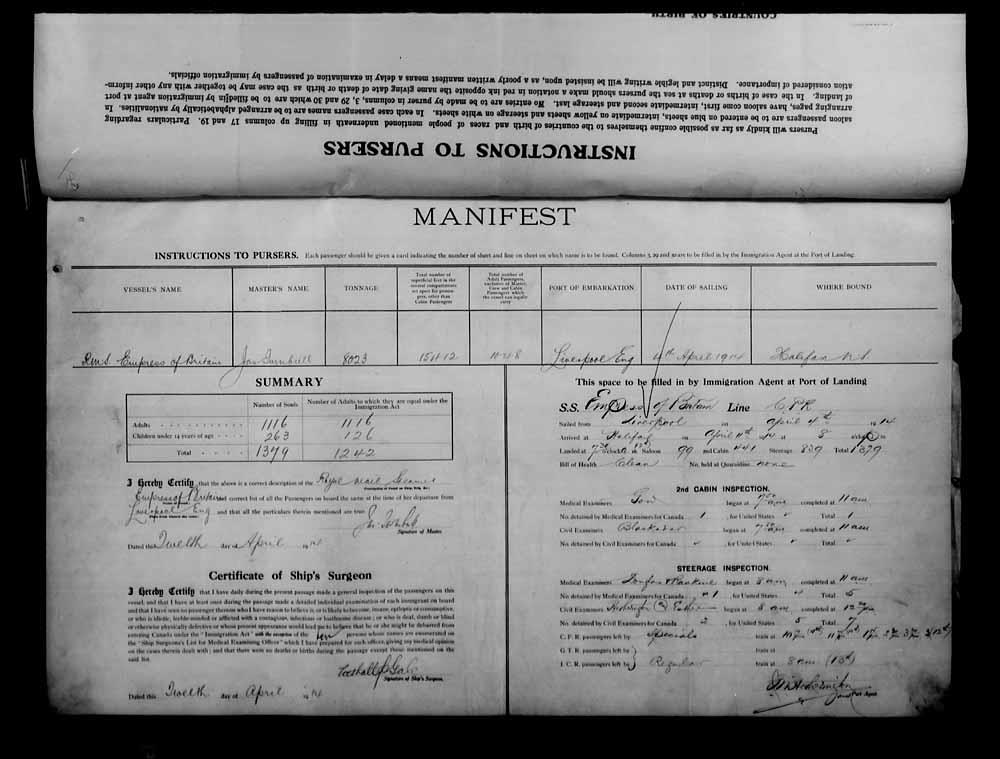 COUNTRIES OF BIRTH
INSTRUCTIONS TO PURSERS
Pursers will kindly as far as possible confine themselves to the countries of birth and races of people mentioned underneath in filling up columns 17 and 19. Particulars regarding
saloon passengers are to be entered on blue sheets, intermediate on yellow sheets and steerage on white sheets. In each case passengers names are to be arranged alphabetically by nationalities. In
arranging pages, have saloon come first, intermediate second and steerage last. No entries are to be made by purser in columns, 3, 29 and 30 which are to be filled in by immigration agent at port
of landing. In the case of births or deaths at sea the pursers should make a notation in red ink opposite the name giving date of death or birth as the case may be together with any other inform-
ation considered of importance. Distinct and legible writing will be insisted upon, as a poorly written manifest means a delay in examination of passengers by immigration officials.
MANIFEST
INSTRUCTIONS TO PURSERS. Each passenger should be given a card indicating the number of sheet and line on sheet on which name is to be found. Columns 3, 29 and 30 are to be filled in by the Immigration Agent at the Port of Landing.
VESSEL'S NAME MASTER'S NAME TONNAGE Total number of superficial feet in the several compartments set apart for passengers, other than Cabin Passengers Total number of Adult Passengers, exclusive of Master, Crew and Cabin Passengers which the vessel can legally carry PORT OF EMBARKATION DATE OF SAILING WHERE BOUND
R.M.S. Empress of Britain Jas Turnbull 8023 15412 1148 Liverpool Eng 4th April 1914 Halifax N.S.
SUMMARY
Number of Souls Number of Adults to which they are equal under the Immigration Act
Adults 1116 1116
Children under 14 years of age 263 126
Total 1379 1242
I Hereby Certify that the above is a correct description of the Royal Mail Steamer
(Description of Vessel as Ship, Brig, &c.)
Empress of Britain and correct list of all the Passengers on board the same at the time of her departure from
Liverpool Eng and that all the particulars therein mentioned are true.
Signature of Master
Dated this Twelth day of April 1914
Certificate of Ship's Surgeon
I Hereby Certify that I have daily during the present passage made a general inspection of the passengers on this
vessel, and that I have at least once during the passage made a detailed individual examination of each immigrant on board
and that I have seen no passenger thereon who I have reason to believe is, or is likely to become, insane, epileptic or consumptive,
or who is idiotic, feeble-minded or afflicted with a contagious, infectious or loathsome disease; or who is deaf, dumb or blind
or otherwise physically defective or whose present appearance would lead me to believe that he or she might be debarred from
entering Canada under the "Immigration Act" with the exception of the ten persons whose names are enumerated on
the "Ship Surgeon's List for Medical Examining Officer" which I have prepared for such officer, giving my medical opinion
on the cases therein dealt with; and that there were no deaths or births during the passage except those mentioned on the
said list.
Signature of Ship's Surgeon.
Dated this Twelth day of April 1914
This space to be filled in by Immigration Agent at Port of Landing
S.S. Empress of Britain Line C.P.R.
Sailed from Liverpool on April 4th 1914
Arrived at Halifax on April 11th 1914 at 8 o'clock
Landed at Saloon 99 2nd Cabin 441 Steerage 839 Total 1379
Bill of Health Clean No. held at Quarantine none
2nd CABIN INSPECTION.
Medical Examiners began at 7 30 am completed at 11 am
No. detained by Medical Examiners for Canada 1 , for United States Total 1
Civil Examiners began at 7 30 am completed at 11 am
No. detained by Civil Examiners for Canada , for United States Total
STEERAGE INSPECTION.
Medical Examiners began at 8 am completed at 11 am
No. detained by Medical Examiners for Canada 1 , for United States 4 Total 5
Civil Examiners began at 8 am completed at
No. detained by Civil Examiners for Canada 2 , for United States 5 Total 7
C. P. R. passengers left by Specials train at
G. T. R. passengers left by train at
I. C. R. passengers left by Regular train at 8 am (13th)
Port Agent